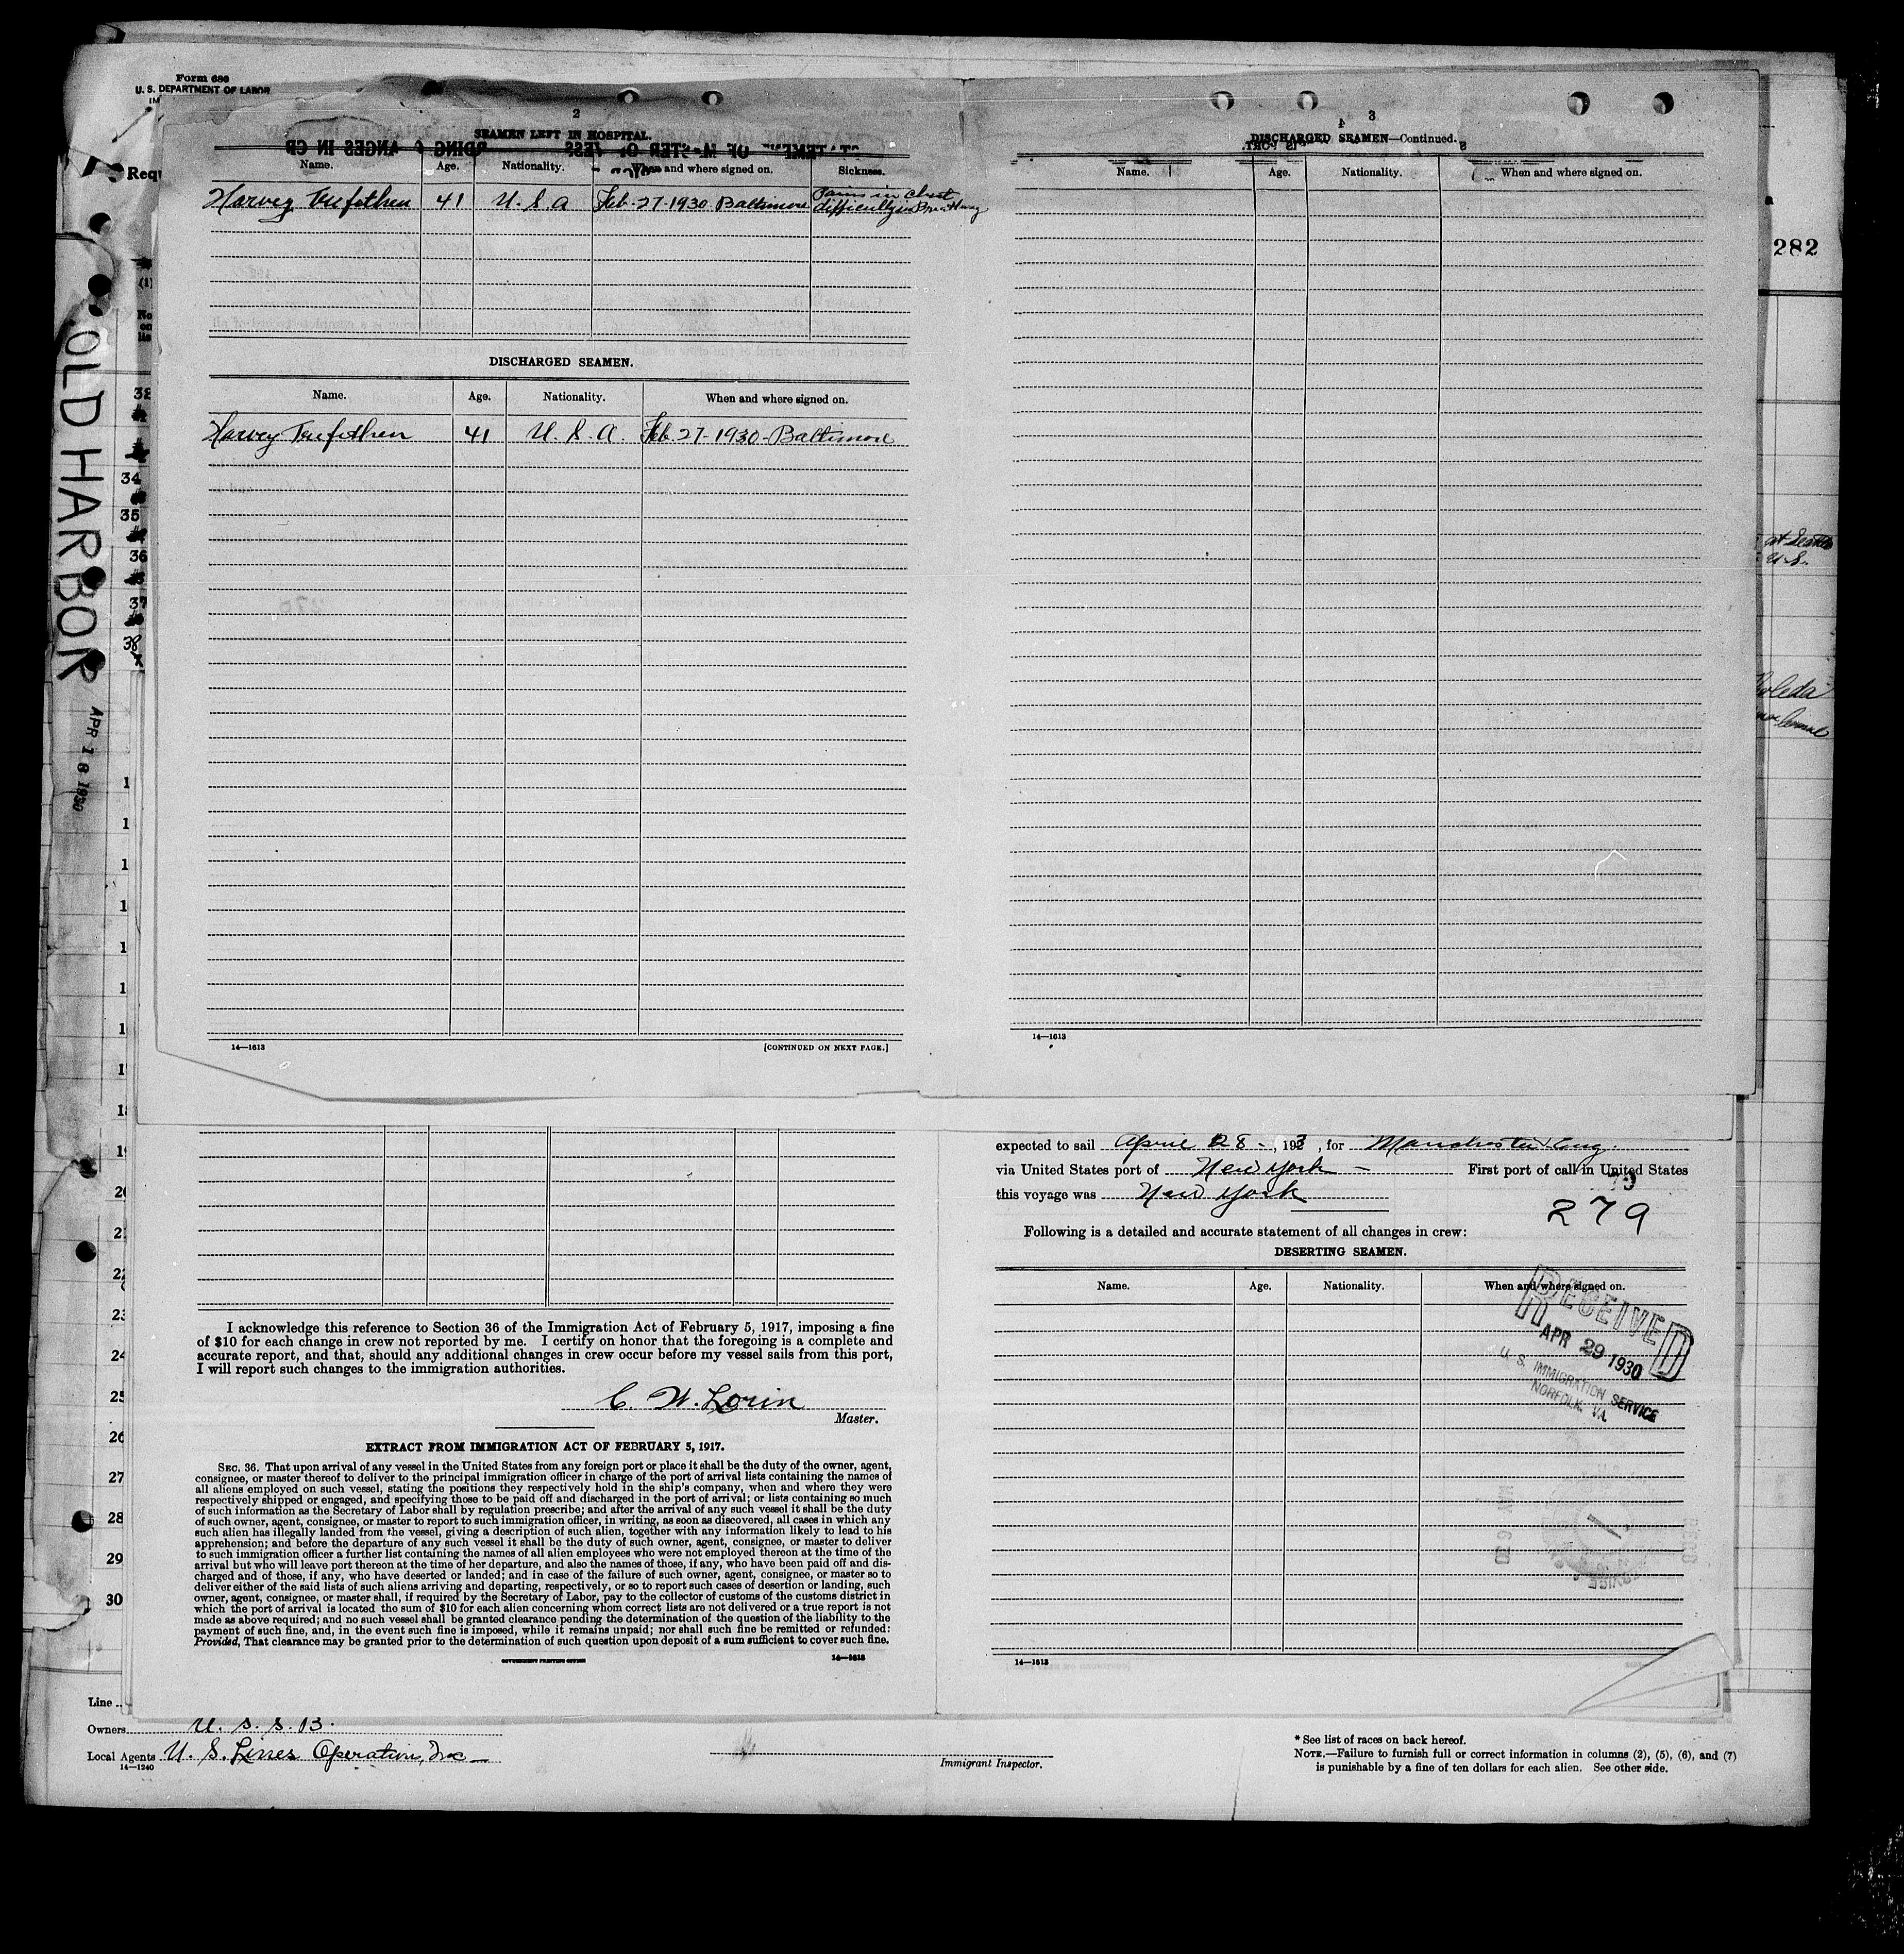 Form 680
U. S. DEPARTMENT OF LABOR
2
SEAMEN LEFT IN HOSPITAL.
Name. Age. Nationality. When and where signed on. Sickness.
Harvey 41 U. S. A Feb. 27-1930 Baltimore Pains in Chest
difficulty in Breathing
DISCHARGED SEAMEN.
Name. Age. Nationality. When and where signed on.
Harvey 41 U. S. A. Feb. 27-1930-Baltimore
14—1613 [CONTINUED ON NEXT PAGE.]
3
DISCHARGED SEAMEN—Continued.
Name. Age. Nationality. When and where signed on.
14—1613
282
at Seattle
U.S.
OLD HARBOR
APR 18 1930
32
34
35
36
37
38
19
20
21
22
23
24
25
26
27
28
29
30
I acknowledge this reference to Section 36 of the Immigration Act of February 5, 1917, imposing a fine
of $10 for each change in crew not reported by me. I certify on honor that the foregoing is a complete and
accurate report, and that, should any additional changes in crew occur before my vessel sails from this port,
I will report such changes to the immigration authorities.
C. W. Lorin
Master.
EXTRACT FROM IMMIGRATION ACT OF FEBRUARY 5, 1917.
SEC. 36. That upon arrival of any vessel in the United States from any foreign port or place it shall be the duty of the owner, agent,
consignee, or master thereof to deliver to the principal immigration officer in charge of the port of arrival lists containing the names of
all aliens employed on such vessel, stating the positions they respectively hold in the ship's company, when and where they were
respectively shipped or engaged, and specifying those to be paid off and discharged in the port of arrival; or lists containing so much
of such information as the Secretary of Labor shall by regulation prescribe; and after the arrival of any such vessel it shall be the duty
of such owner, agent, consignee, or master to report to such immigration officer, in writing, as soon as discovered, all cases in which any
such alien has illegally landed from the vessel, giving a description of such alien, together with any information likely to lead to his
apprehension; and before the departure of any such vessel it shall be the duty of such owner, agent, consignee, or master to deliver
to such immigration officer a further list containing the names of all alien employees who were not employed thereon at the time of the
arrival but who will leave port thereon at the time of her departure, and also the names of those, if any, who have been paid off and dis-
charged and of those, if any, who have deserted or landed; and in case of the failure of such owner, agent, consignee, or master so to
deliver either of the said lists of such aliens arriving and departing, respectively, or so to report such cases of desertion or landing, such
owner, agent, consignee, or master shall, if required by the Secretary of Labor, pay to the collector of customs of the customs district in
which the port of arrival is located the sum of $10 for each alien concerning whom correct lists are not delivered or a true report is not
made as above required; and no such vessel shall be granted clearance pending the determination of the question of the liability to the
payment of such fine, and, in the event such fine is imposed, while it remains unpaid; nor shall such fine be remitted or refunded:
Provided, That clearance may be granted prior to the determination of such question upon deposit of a sum sufficient to cover such fine.
GOVERNMENT PRINTING OFFICE 14—1613
expected to sail April 28-, 193 , for Manchester Eng.
via United States port of New York — First port of call in United States
this voyage was New York
279
Following is a detailed and accurate statement of all changes in crew:
DESERTING SEAMEN.
Name. Age. Nationality. When and where signed on.
RECEIVED
APR 29 1930
U. S. IMMIGRATION SERVICE
NORFOLK, VA.
14—1613
Line
Owners U. S. S. B.
Local Agents U. S. Lines Operation, Inc —
14—1240
Immigrant Inspector.
* See list of races on back hereof.
NOTE.—Failure to furnish full or correct information in columns (2), (5), (6), and (7)
is punishable by a fine of ten dollars for each alien. See other side.